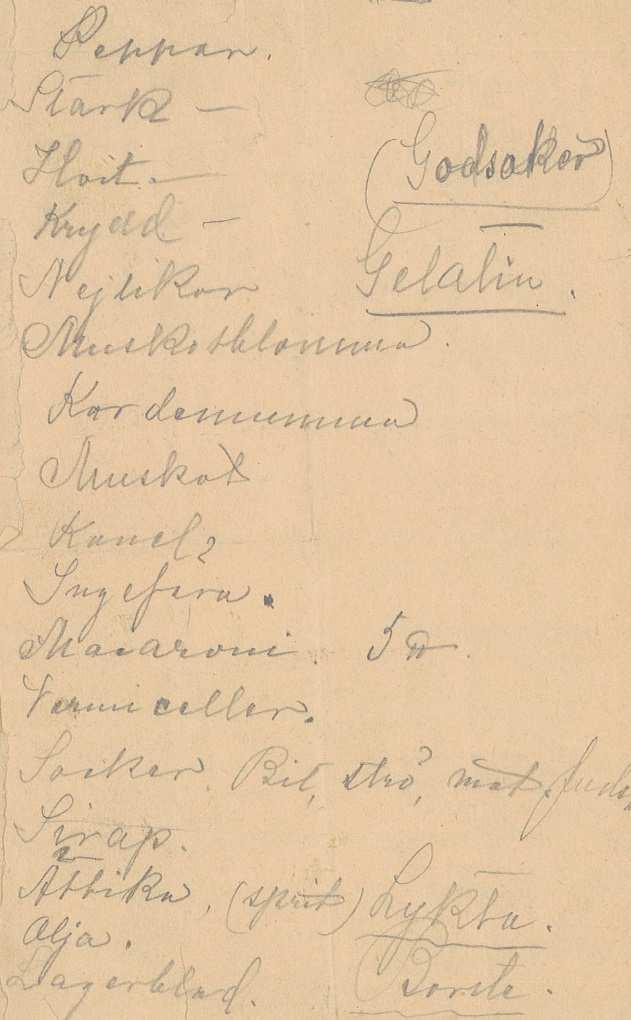 Peppar.
Stark —
Hvit. —
(Godsaker)
Krydd —
Nejlikor
Gelatin.
Muskotblomma.
Kardemumma
Muskot
Kanel,
Ingefära.
Macaroni. 5 ℔.
Vermiceller.
Socker. Bit, strö, mat,
Sirap.
Ättika, (sprit) Lykta.
Olja.
Lagerblad. Borste.